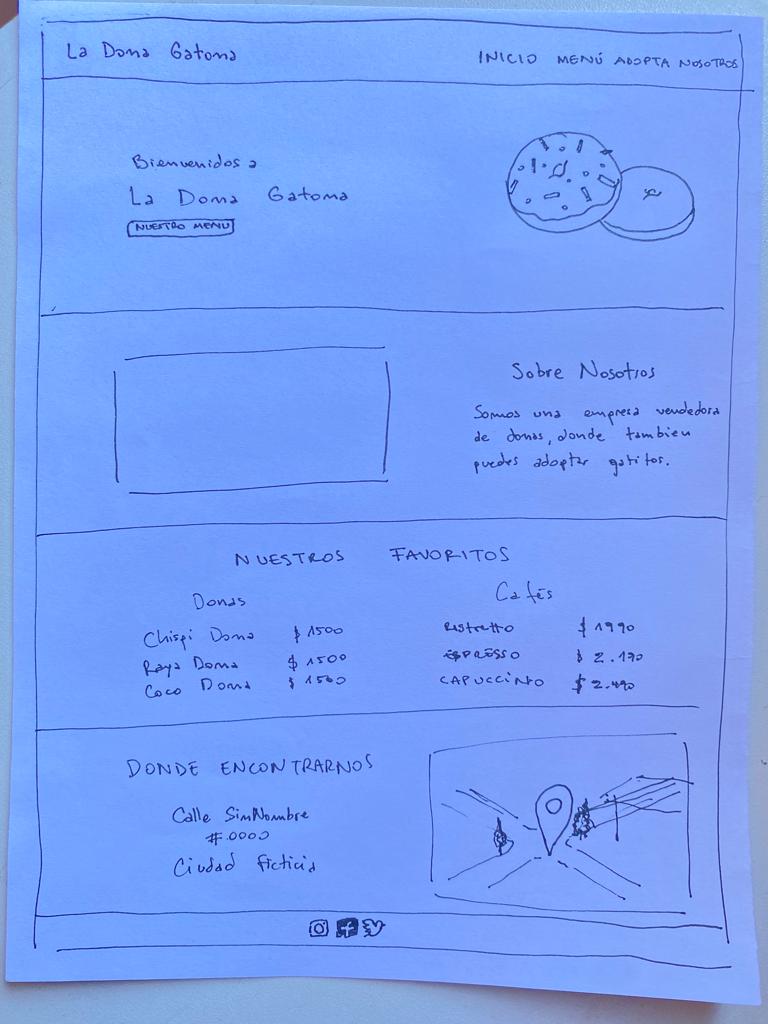 La Dona Gatona
INICIO MENÚ ADOPTA NOSOTROS
Bienvenidos a
La Dona Gatona
NUESTRO MENU
Sobre Nosotros
Somos una empresa vendedora
de donas, donde tambien
puedes adoptar gatitos.
NUESTROS FAVORITOS
Donas
Chispi Dona $1500
Raya Dona $1500
Coco Dona $1500
Cafés
Ristretto $1990
ESPRESSO $2.190
CAPUCCINO $2.490
DONDE ENCONTRARNOS
Calle SinNombre
#0000
Ciudad Ficticia